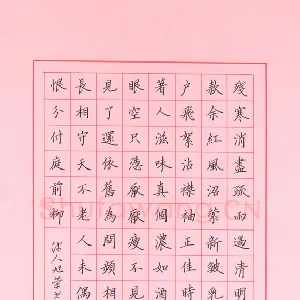 殘寒消盡疎雨過清明
款余紅風沼縈新皺乳
户飛絮沾襟袖正佳時
著人滋味真個濃如酒
眼空只憑厭厭瘦不見
見了還依舊為問頻相
長相守天不老人未偶
恨分付庭前柳